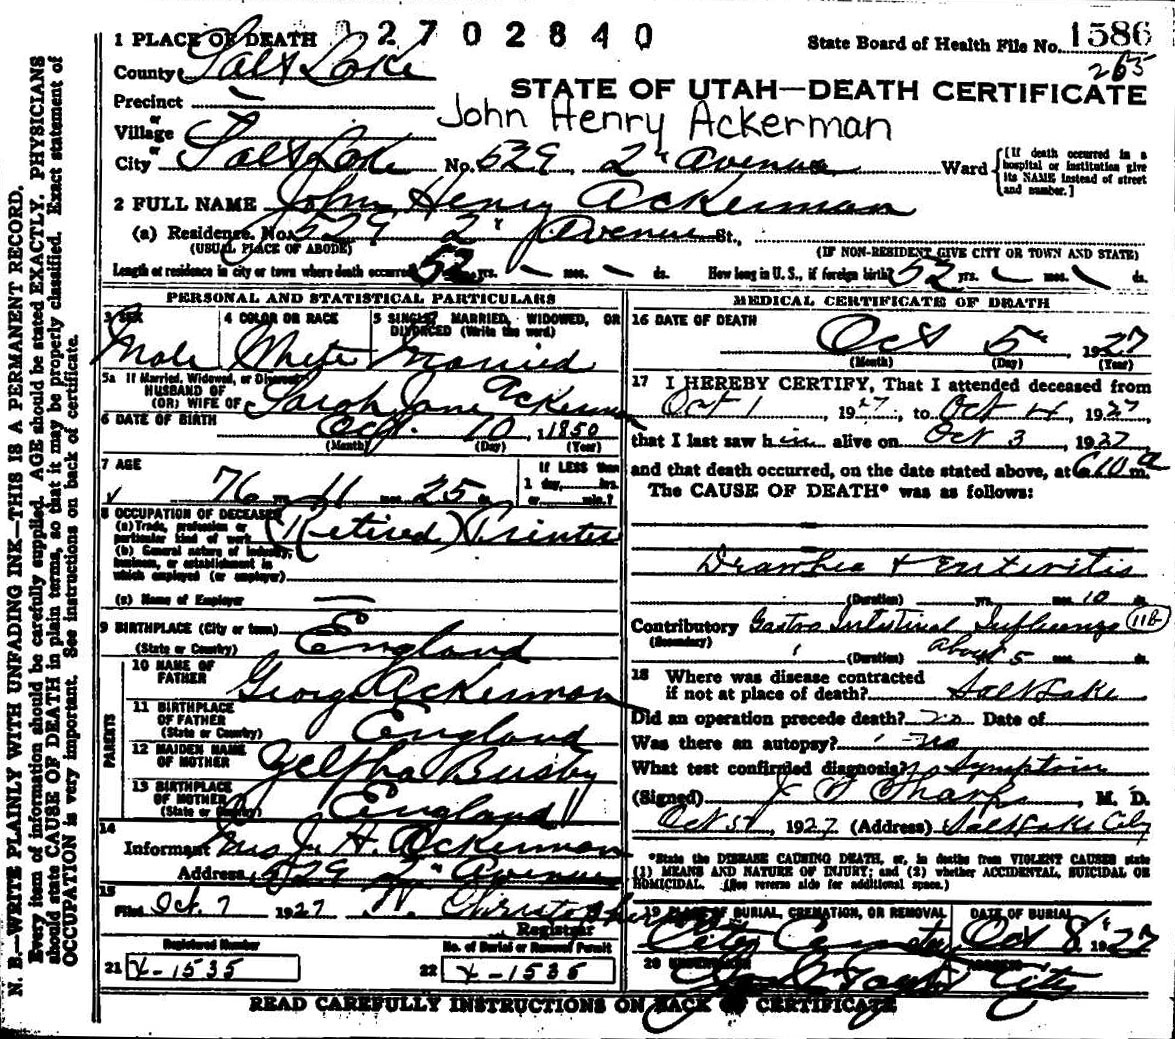 1 PLACE OF DEATH 2702840
State Board of Health File No. 1586
County Salt Lake
265
STATE OF UTAH—DEATH CERTIFICATE
Precinct
or
Village
John Henry Ackerman
or
City Salt Lake No. 529 2" Avenue Ward [If death occurred in a hospital or institution give its NAME instead of street and number.]
2 FULL NAME John Henry Ackerman
(a) Residence. No. 529 2" Avenue St.,
(USUAL PLACE OF ABODE) (IF NON-RESIDENT GIVE CITY OR TOWN AND STATE)
Length of residence in city or town where death occurred 52 yrs. — mos. — ds. How long in U. S., if foreign birth? 52 yrs. — mos. — ds.
PERSONAL AND STATISTICAL PARTICULARS
3 SEX 4 COLOR OR RACE 5 SINGLE, MARRIED, WIDOWED, OR DIVORCED (Write the word)
Male White Married
5a If Married, Widowed, or Divorced
HUSBAND OF
(OR) WIFE OF Sarah Jane Ackerman
6 DATE OF BIRTH Oct. 10, 1850
(Month) (Day) (Year)
7 AGE 76 yrs. 11 mos. 25 ds.
If LESS than
1 day, hrs.
or min.?
8 OCCUPATION OF DECEASED
(a) Trade, profession or
particular kind of work (Retired) Printer
(b) General nature of industry,
business, or establishment in
which employed (or employer)
(c) Name of Employer —
9 BIRTHPLACE (City or town)
(State or Country) England
PARENTS
10 NAME OF
FATHER George Ackerman
11 BIRTHPLACE
OF FATHER
(State or Country) England
12 MAIDEN NAME
OF MOTHER Busby
13 BIRTHPLACE
OF MOTHER
(State or Country) England
14
Informant Mrs J. H. Ackerman
Address 529 2" Avenue
15
Filed Oct. 7 1927
Registrar
Registered Number
21 x-1535
No. of Burial or Removal Permit
22 x-1535
MEDICAL CERTIFICATE OF DEATH
16 DATE OF DEATH
Oct 5" 1927
(Month) (Day) (Year)
17 I HEREBY CERTIFY, That I attended deceased from
Oct 1, 1927, to Oct 4, 1927
that I last saw him alive on Oct 3, 1927
and that death occurred, on the date stated above, at 610 a m.
The CAUSE OF DEATH* was as follows:
Diarrhea + Enteritis
(Duration) yrs. mos. 10 ds.
Contributory Gastro Intestinal Influenza 11B
(Secondary)
(Duration) about 5 mos. ds.
18 Where was disease contracted
if not at place of death? Salt Lake
Did an operation precede death? no Date of
Was there an autopsy? no
What test confirmed diagnosis? Symptoms
(Signed) J F Sharp, M. D.
Oct 5, 1927 (Address) Salt Lake City
*State the DISEASE CAUSING DEATH, or, in deaths from VIOLENT CAUSES state
(1) MEANS AND NATURE OF INJURY; and (2) whether ACCIDENTAL, SUICIDAL OR
HOMICIDAL. (See reverse side for additional space.)
19 PLACE OF BURIAL, CREMATION, OR REMOVAL DATE OF BURIAL
City Cemetery Oct 8" 1927
20 UNDERTAKER ADDRESS
City
READ CAREFULLY INSTRUCTIONS ON BACK OF CERTIFICATE
N. B.—WRITE PLAINLY WITH UNFADING INK—THIS IS A PERMANENT RECORD.
Every item of information should be carefully supplied. AGE should be stated EXACTLY. PHYSICIANS
should state CAUSE OF DEATH in plain terms, so that it may be properly classified. Exact statement of
OCCUPATION is very important. See instructions on back of certificate.